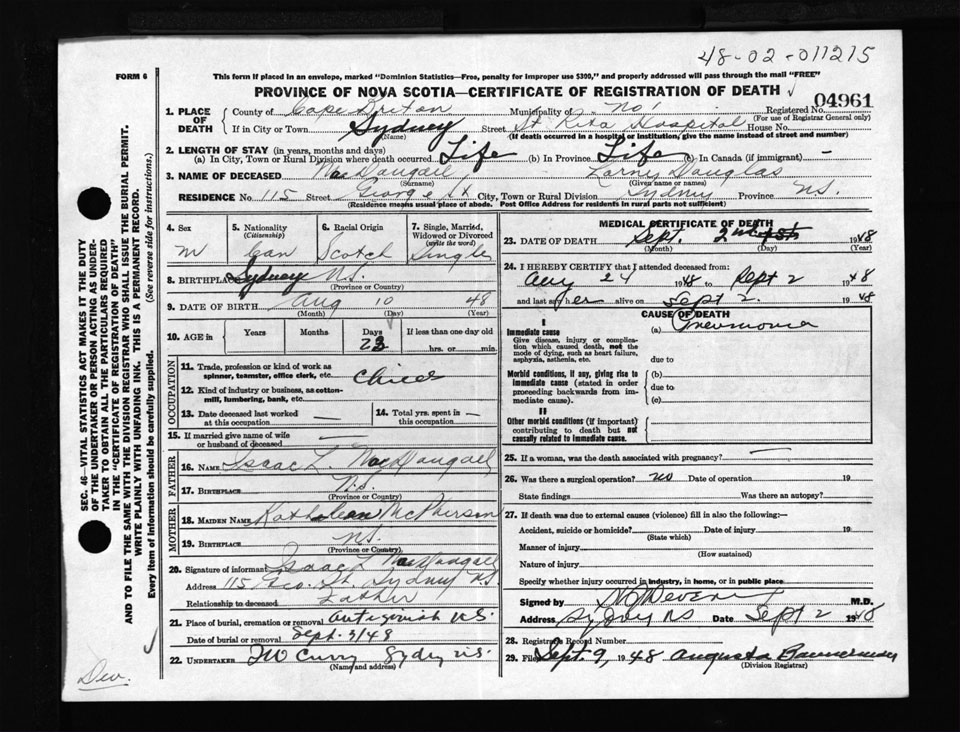 48-02-011215
FORM 6
This form if placed in an envelope, marked "Dominion Statistics—Free, penalty for improper use $300," and properly addressed will pass through the mail "FREE"
PROVINCE OF NOVA SCOTIA—CERTIFICATE OF REGISTRATION OF DEATH
04961
1. PLACE OF DEATH
County of Cape Breton Municipality of Registered No.
(For use of Registrar General only)
If in City or Town Sydney Street St Rita Hospital House No.
(Name) (If death occurred in a hospital or institution, give the name instead of street and number)
2. LENGTH OF STAY (in years, months and days)
(a) In City, Town or Rural Division where death occurred Life (b) In Province Life (c) In Canada (if immigrant) —
3. NAME OF DECEASED MacDougall Douglas
(Surname) (Given name or names)
RESIDENCE No 115 Street George St City, Town or Rural Division Sydney Province N.S.
(Residence means usual place of abode. Post Office Address for residents in rural parts not sufficient)
4. Sex
M
5. Nationality
(Citizenship)
Can
6. Racial Origin
Scotch
7. Single, Married, Widowed or Divorced
(write the word)
Single
8. BIRTHPLACE Sydney N.S.
(Province or Country)
9. DATE OF BIRTH Aug 10 48
(Month) (Day) (Year)
10. AGE in
Years Months Days If less than one day old
23 hrs. or min.
OCCUPATION
11. Trade, profession or kind of work as spinner, teamster, office clerk, etc.
12. Kind of industry or business, as cotton-mill, lumbering, bank, etc.
13. Date deceased last worked at this occupation —
14. Total yrs. spent in this occupation —
15. If married give name of wife or husband of deceased —
FATHER
16. NAME Isaac L. MacDougall
17. BIRTHPLACE N.S.
(Province or Country)
MOTHER
18. MAIDEN NAME Kathleen McPherson
19. BIRTHPLACE N.S.
(Province or Country)
20. Signature of informant Isaac L MacDougall
Address 115 Geo. St. Sydney N.S.
Relationship to deceased Father
21. Place of burial, cremation or removal Antigonish N.S.
Date of burial or removal Sept. 3/48
22. UNDERTAKER TW Curry Sydney N.S.
(Name and address)
MEDICAL CERTIFICATE OF DEATH
23. DATE OF DEATH Sept. 2nd 1948
(Month) (Day) (Year)
24. I HEREBY CERTIFY that I attended deceased from:
Aug 24 1948 to Sept 2 1948
and last saw her alive on Sept 2. 1948
CAUSE OF DEATH
I
Immediate cause (a) Pneumonia
Give disease, injury or complication which caused death, not the mode of dying, such as heart failure, asphyxia, asthenia, etc.
due to
Morbid conditions, if any, giving rise to immediate cause (stated in order proceeding backwards from immediate cause).
(b)
due to
(c)
II
Other morbid conditions (if important) contributing to death but not causally related to immediate cause.
25. If a woman, was the death associated with pregnancy? —
26. Was there a surgical operation? no Date of operation 19
State findings Was there an autopsy?
27. If death was due to external causes (violence) fill in also the following:—
Accident, suicide or homicide? Date of injury 19
(State which)
Manner of injury
(How sustained)
Nature of injury
Specify whether injury occurred in industry, in home, or in public place
Signed by M.D.
Address Sydney NS Date Sept 2 1948
28. Registrar's Record Number
29. Filed Sept. 9, 1948 Augusta
(Division Registrar)
SEC. 46—VITAL STATISTICS ACT MAKES IT THE DUTY
OF THE UNDERTAKER OR PERSON ACTING AS UNDER-
TAKER TO OBTAIN ALL THE PARTICULARS REQUIRED
IN THE "CERTIFICATE OF REGISTRATION OF DEATH"
AND TO FILE THE SAME WITH THE DIVISION REGISTRAR WHO SHALL ISSUE THE BURIAL PERMIT.
WRITE PLAINLY WITH UNFADING INK. THIS IS A PERMANENT RECORD.
Every item of information should be carefully supplied. (See reverse side for instructions.)
Dev.